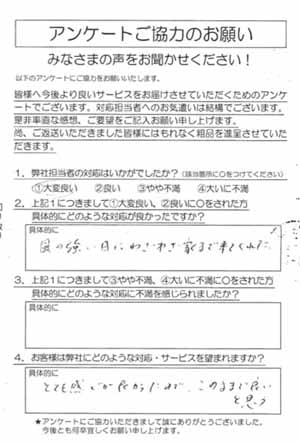 アンケートご協力のお願い
みなさまの声をお聞かせください！
以下のアンケートにご協力をお願いいたします。
皆様へ今後より良いサービスをお届けさせていただくためのアンケ
ートでございます。対応担当者へのお気遣いは結構でございます。
是非率直な感想、ご要望をご記入お願い申し上げます。
尚、ご返送いただきました皆様にはもれなく粗品を進呈させていた
だきます。
1．弊社担当者の対応はいかがでしたか？（該当箇所に○をつけてください）
①大変良い ②良い ③やや不満 ④大いに不満
2．上記１につきまして①大変良い、②良いに○をされた方
具体的にどのような対応が良かったですか？
具体的に
風の強い日にわざわざ家まで来てくれた
3．上記１につきまして③やや不満、④大いに不満に○をされた方
具体的にどのような対応に不満を感じられましたか？
具体的に
4．お客様は弊社にどのような対応・サービスを望まれますか？
具体的に
とても感じが良かったので、このままで良い
と思う
★アンケートにご協力いただきまして誠にありがとうございました。
今後とも何卒宜しくお願い申し上げます。